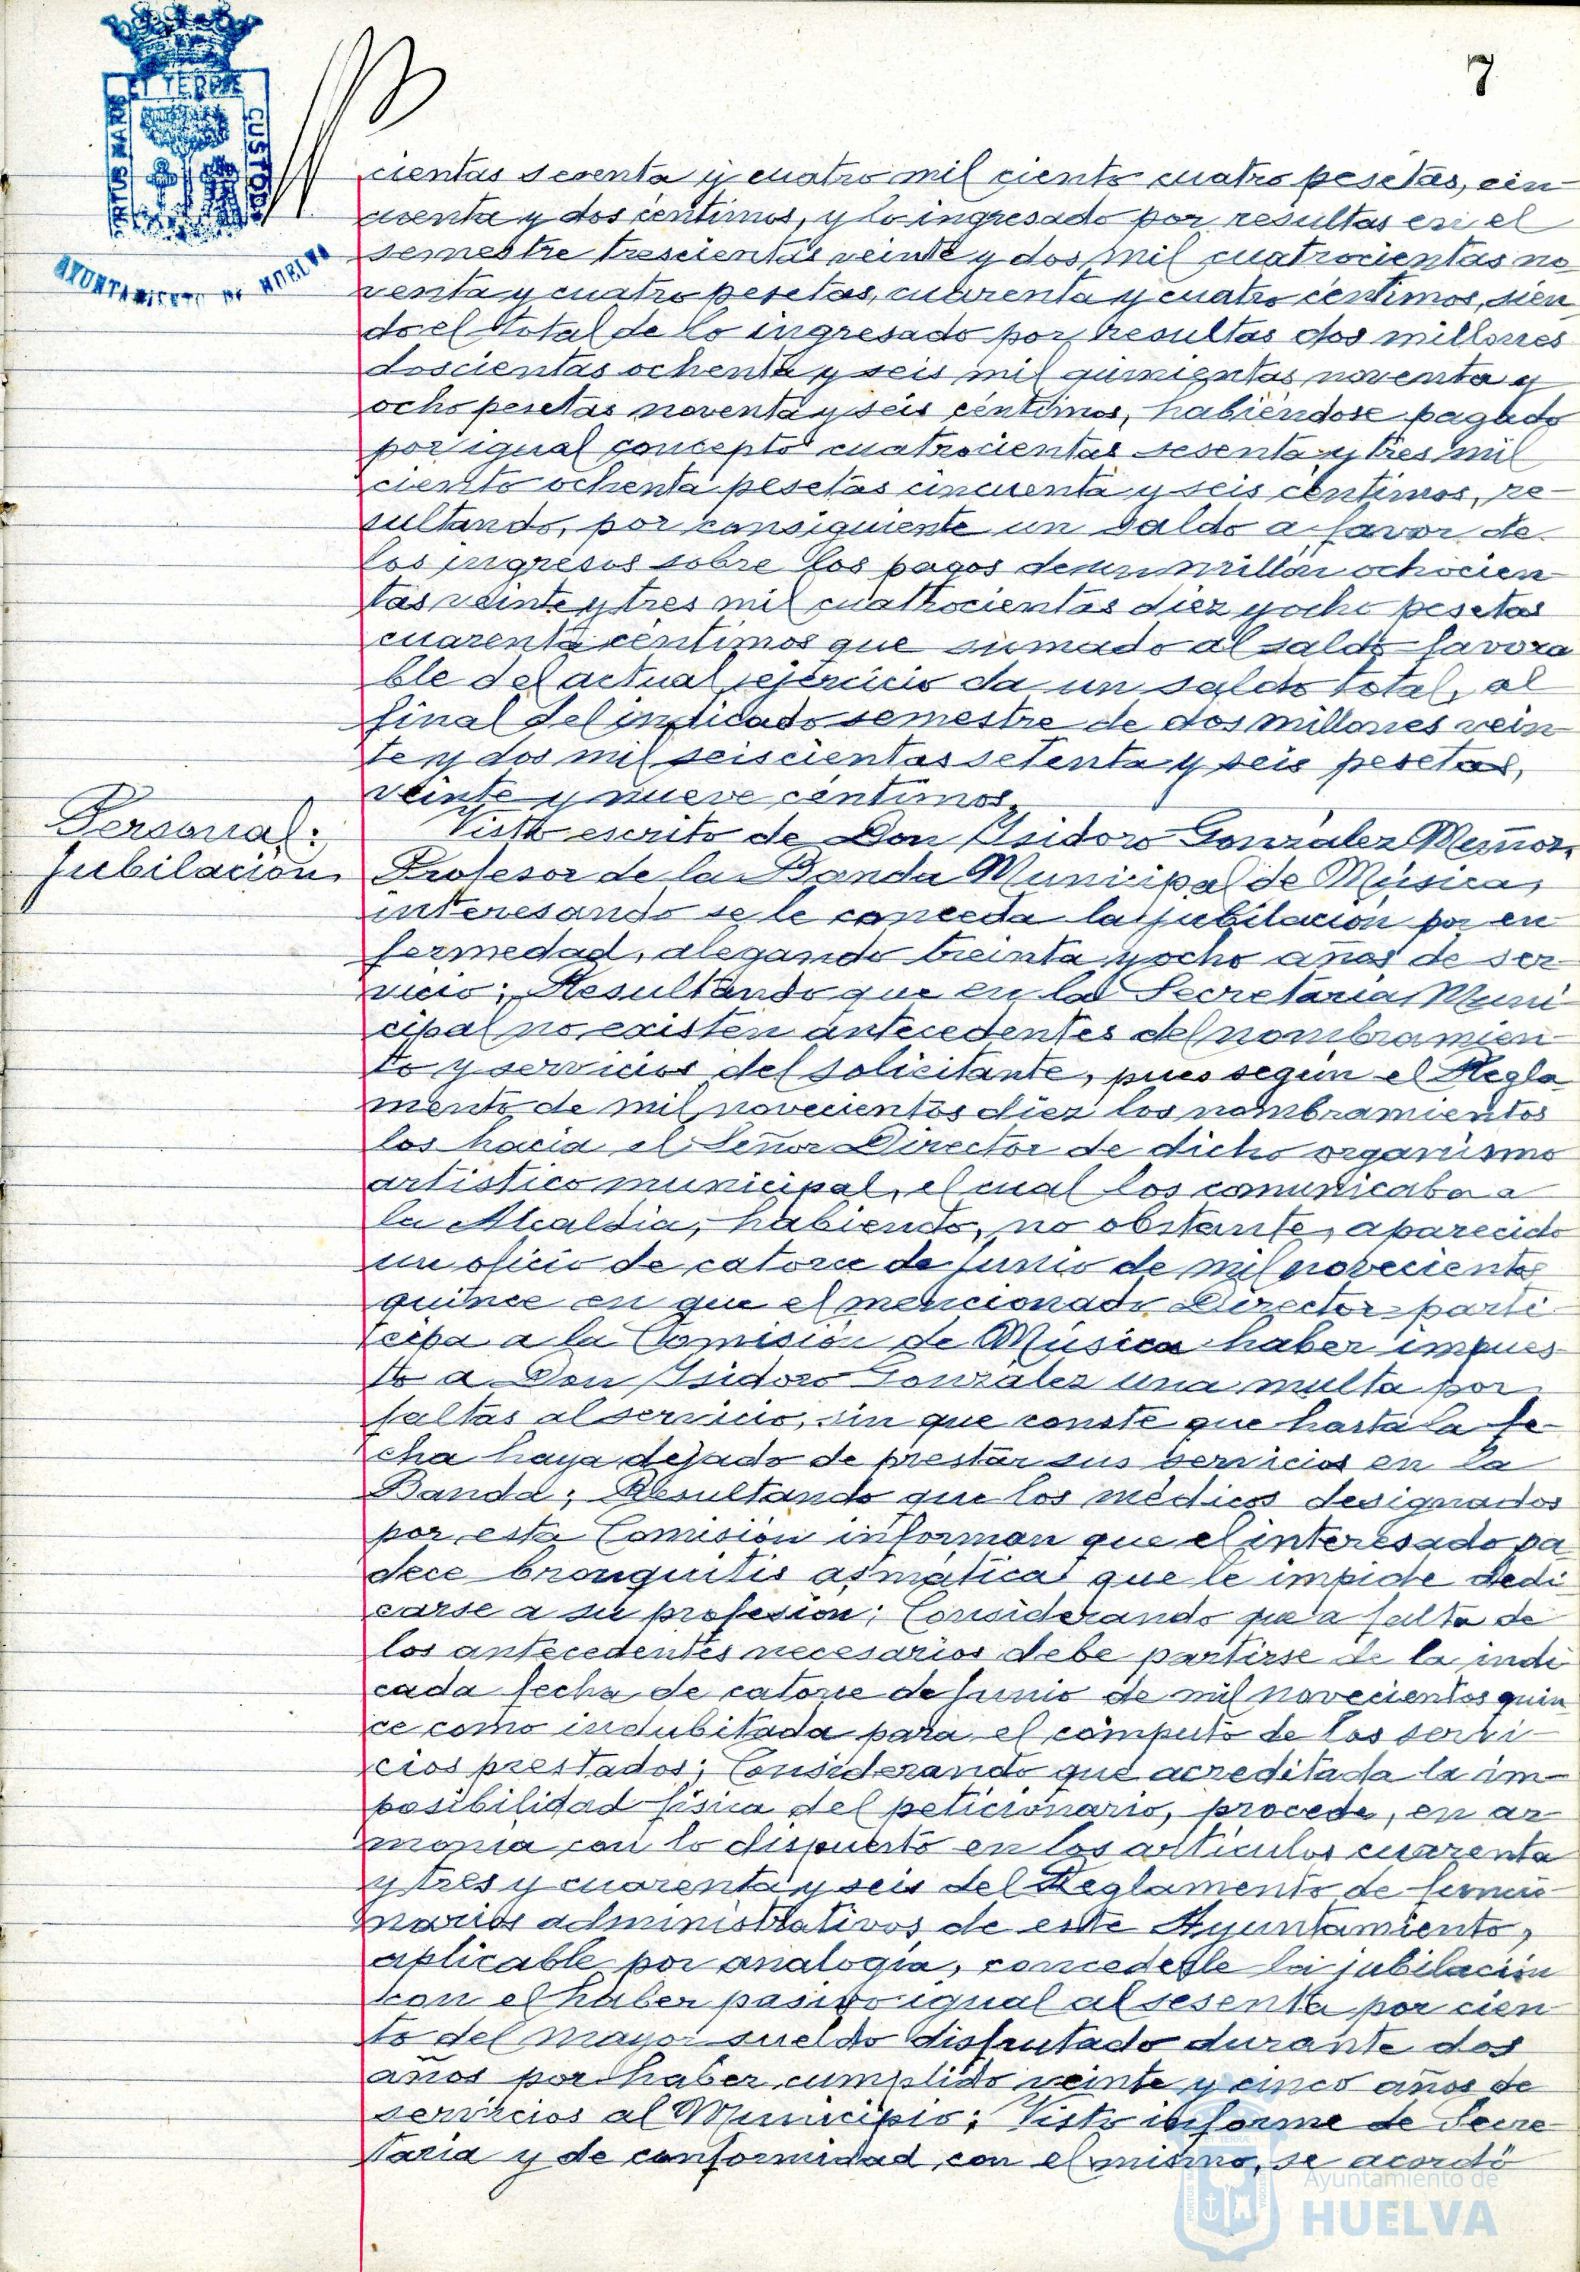 7
ET TERRAE
PORTUS MARIS
CUSTODIA
AYUNTAMIENTO DE HUELVA
cientas sesenta y cuatro mil ciento cuatro pesetas, cin
cuenta y dos centimos, y lo ingresado por resultas en el
semestre trescientas veinte y dos mil cuatrocientas no
venta y cuatro pesetas, cuarenta y cuatro céntimos, sien
do el total de lo ingresado por resultas dos millones
doscientas ochenta y seis mil quinientas noventa y
ocho pesetas noventa y seis céntimos, habiéndose pagado
por igual concepto cuatrocientas sesenta y tres mil
ciento ochenta pesetas cincuenta y seis céntimos, re-
sultando, por consiguiente un saldo a favor de
los ingresos sobre los pagos de un millón ochocien
tas veinte y tres mil cuatrocientas diez y ocho pesetas
cuarenta céntimos que sumado al saldo favora
ble del actual ejercicio da un saldo total, al
final del indicado semestre de dos millones vein
te y dos mil seiscientas setenta y seis pesetas,
veinte y nueve céntimos.
Personal:
Jubilación.
Visto escrito de Don Isidoro González Muñoz,
Profesor de la Banda Municipal de Música,
interesando se le conceda la jubilación por en
fermedad, alegando treinta y ocho años de ser
vicio; Resultando que en la Secretaría Muni
cipal no existen antecedentes del nombramien
to y servicios del solicitante, pues según el Regla
mento de mil novecientos diez los nombramientos
los hacía el Señor Director de dicho organismo
artístico municipal, el cual los comunicaba a
la Alcaldía, habiendo, no obstante, aparecido
un oficio de catorce de Junio de mil novecientos
quince en que el mencionado Director parti
cipa a la Comisión de Música haber impues
to a Don Isidoro González una multa por
faltas al servicio, sin que conste que hasta la fe-
cha haya dejado de prestar sus servicios en la
Banda; Resultando que los médicos designados
por esta Comisión informan que el interesado pa
dece bronquitis asmática que le impide dedi
carse a su profesión; Considerando que a falta de
los antecedentes necesarios debe partirse de la indi
cada fecha de catorce de Junio de mil novecientos quin
ce como indubitada para el cómputo de los servi-
cios prestados; Considerando que acreditada la im-
posibilidad física del peticionario, procede, en ar
monía con lo dispuesto en los artículos cuarenta
y tres y cuarenta y seis del Reglamento de funcio-
narios administrativos de este Ayuntamiento,
aplicable por analogía, concederle la jubilación
con el haber pasivo igual al sesenta por cien
to del mayor sueldo disfrutado durante dos
años por haber cumplido veinte y cinco años de
servicios al Municipio; Visto informe de Secre
taría y de conformidad con el mismo, se acordó
Ayuntamiento de
HUELVA